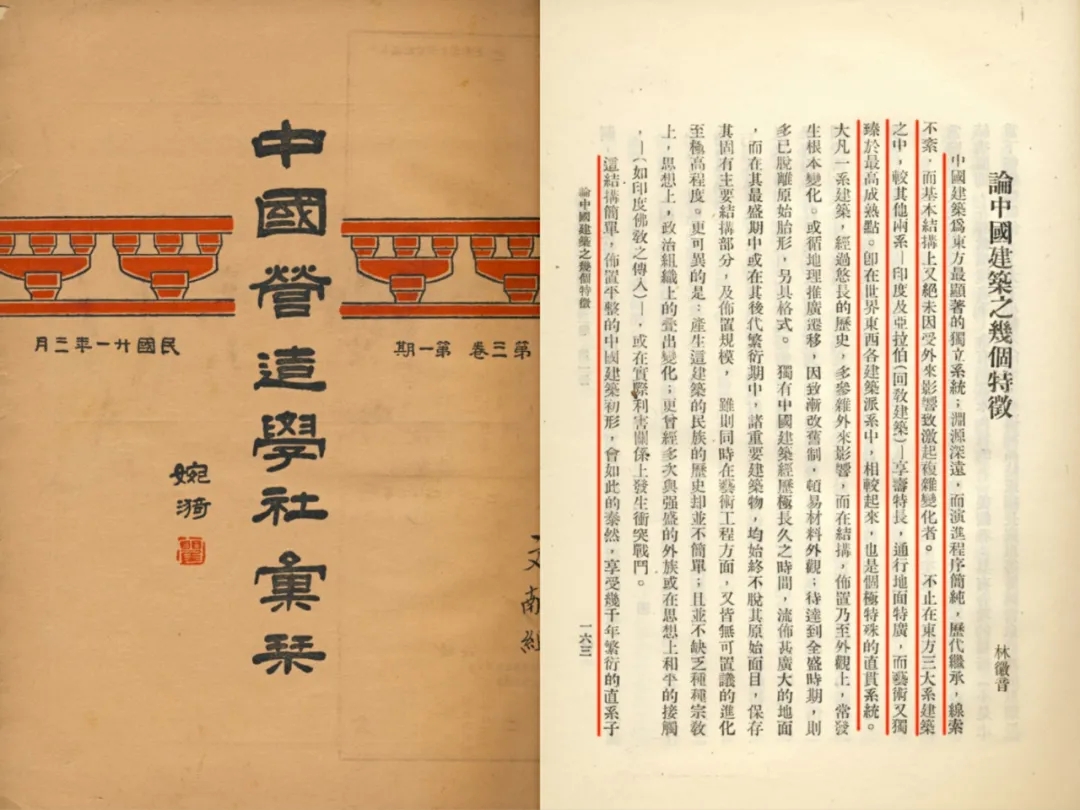 中國營造學社彙栞
第三卷 第一期
民國廿一年三月
婉漪
南
論中國建築之幾個特徵
林徽音
中國建築爲東方最顯著的獨立系統；淵源深遠，而演進程序簡純，歷代繼承，線索
不紊，而基本結搆上又絕未因受外來影響致激起複雜變化者。不止在東方三大系建築
之中，較其他兩系—印度及亞拉伯(回敎建築)—享壽特長，通行地面特廣，而藝術又獨
臻於最高成熟點。卽在世界東西各建築派系中，相較起來，也是個極特殊的直貫系統。
大凡一系建築，經過悠長的歷史，多參雜外來影響，而在結搆，佈置乃至外觀上，常發
生根本變化。或循地理推廣遷移，因致漸改舊制，頓易材料外觀；待達到全盛時期，則
多已脫離原始胎形，另具格式。獨有中國建築經歷極長久之時間，流佈甚廣大的地面
，而在其最盛期中或在其後代繁衍期中，諸重要建築物，均始終不脫其原始面目，保存
其固有主要結搆部分，及佈置規模，雖則同時在藝術工程方面，又皆無可置議的進化
至極高程度。更可異的是：產生這建築的民族的歷史却並不簡單；且並不缺乏種種宗敎
上，思想上，政治組織上的疊出變化；更曾經多次與强盛的外族或在思想上和平的接觸
，—(如印度佛敎之傳入)—，或在實際利害關係上發生衝突戰鬥。
這結搆簡單，佈置平整的中國建築初形，會如此的泰然，享受幾千年繁衍的直系子
論中國建築之幾個特徵
一六三